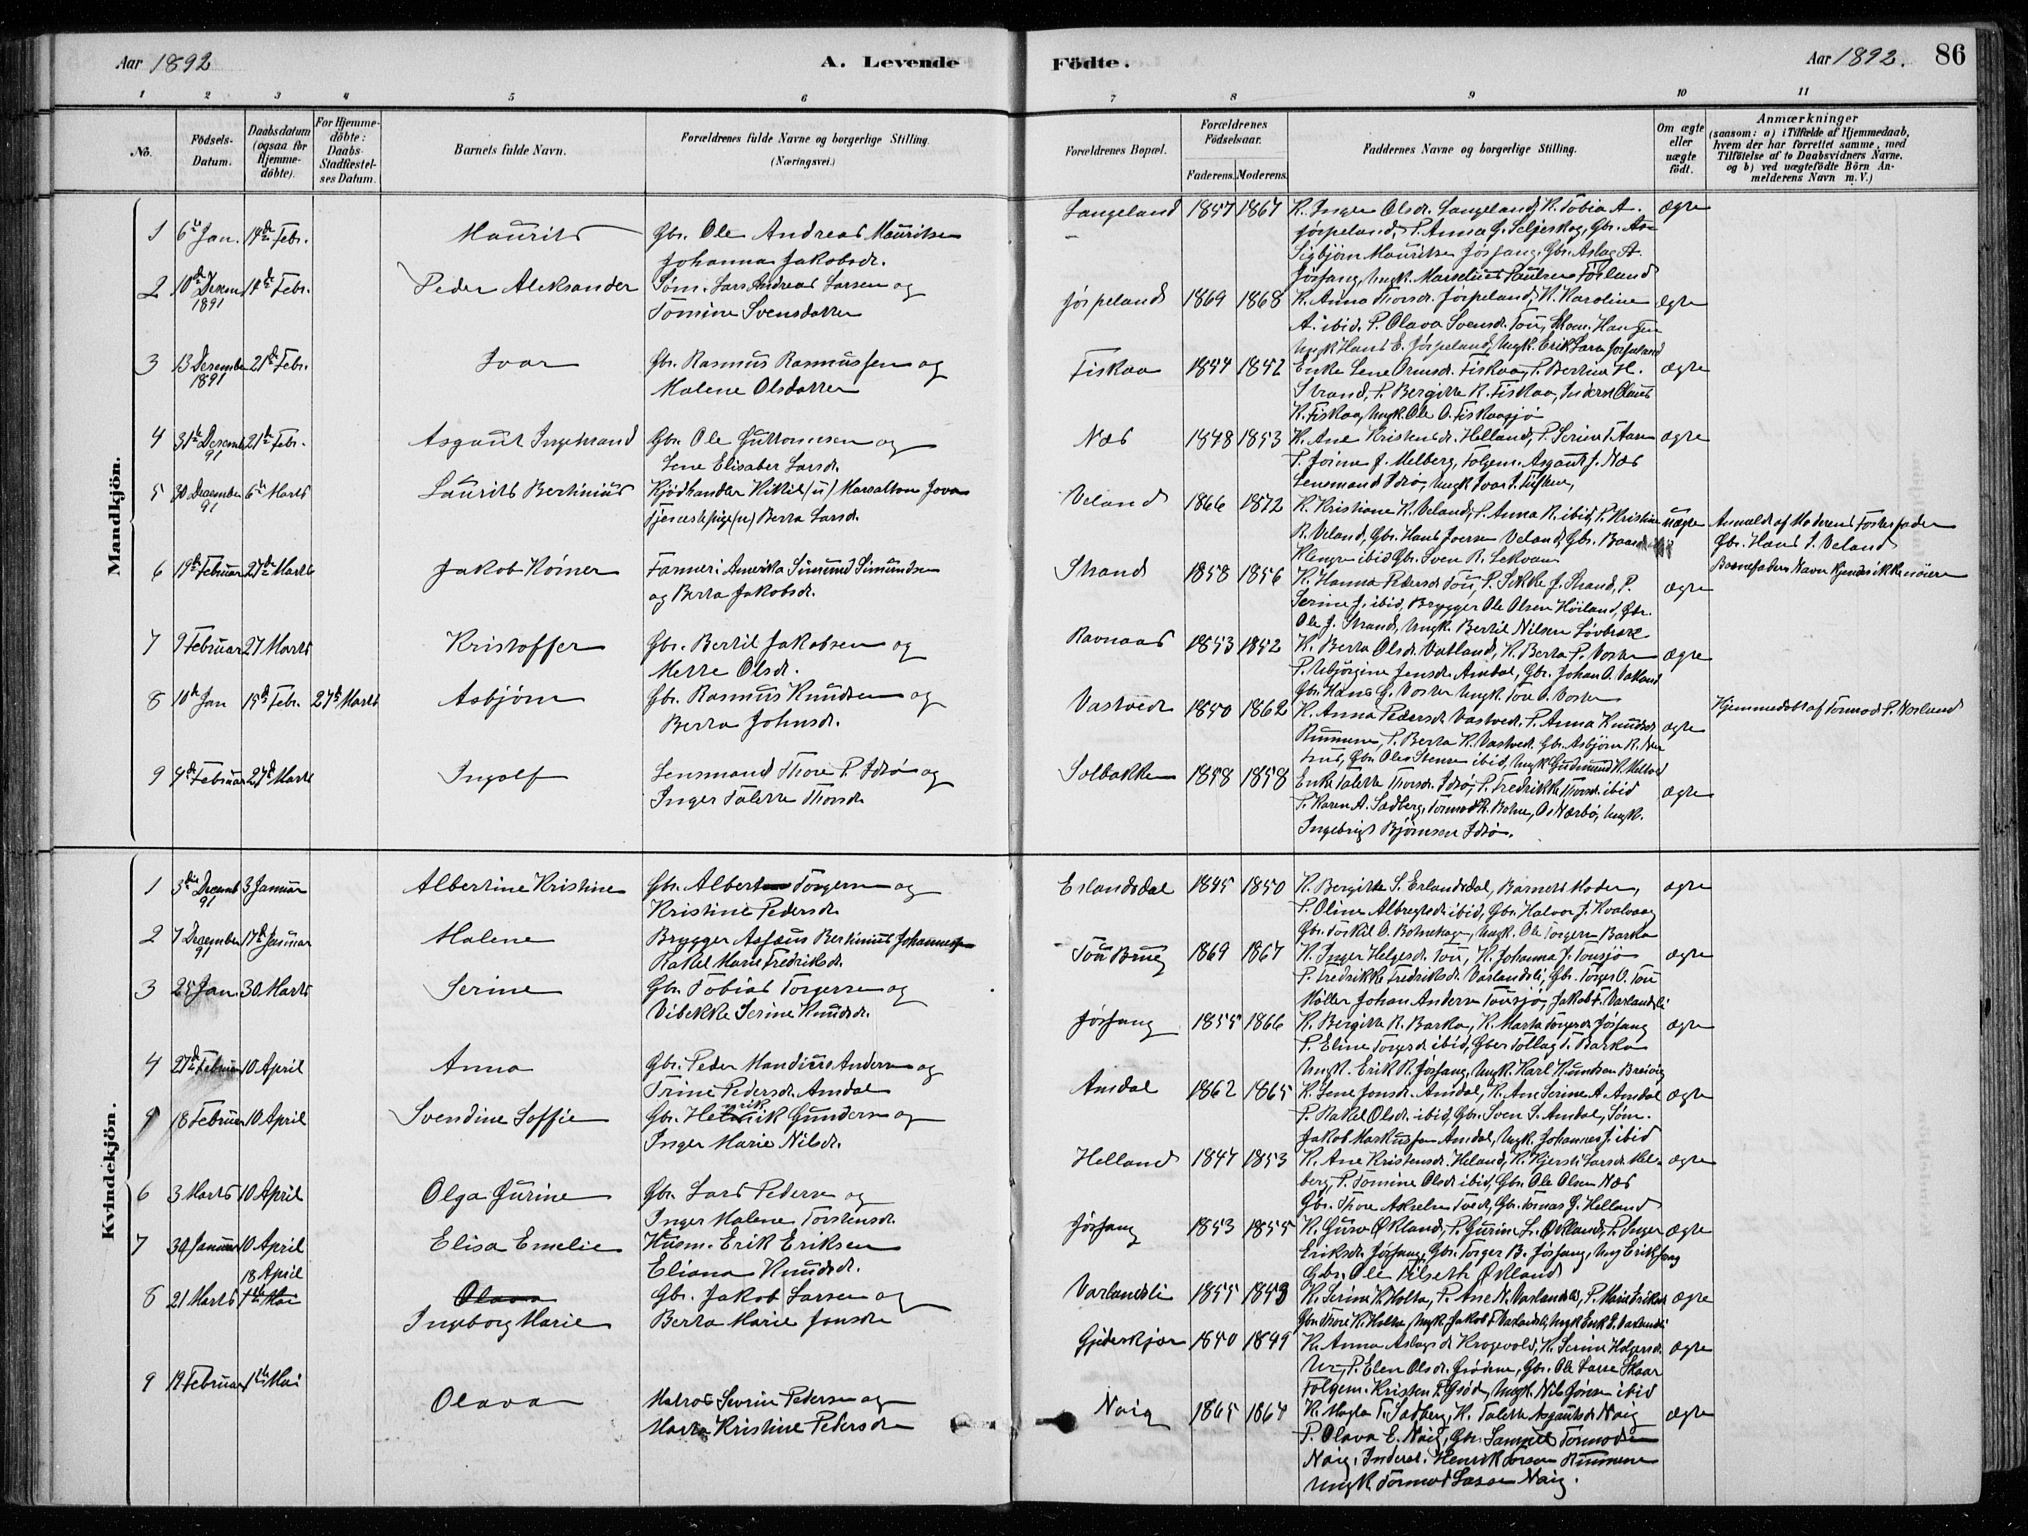 Aar 1892
A. Levende
Födte.
Aar 1892.
86
1 2 3 4 5 6 7 8 9 10 11
No.
Födsels-Datum.
Daabsdatum (ogsaa for Hjemmedöbte).
For Hjemmedöbte: Daabs-Stadfæstelses Datum.
Barnets fulde Navn.
Forældrenes fulde Navne og borgerlige Stilling. (Næringsvei.)
Forældrenes Bopæl.
Forældrenes Födselsaar.
Faderens. Moderens.
Faddernes Navne og borgerlige Stilling.
Om ægte eller uægte födt.
Anmærkninger
(saasom: a) i Tilfælde af Hjemmedaab, hvem der har forrettet samme, med Tilföielse af to Daabsvidners Navne, og b) ved uægtefödte Börn Anmelderens Navn m. V.)
Mandkjön.
1 6te Jan. 14de Febr. Maurits Gbr. Ole Andreas Mauritsen
Johanna Jakobsdr.
Langeland 1857 1867 K. Inger Olsdr. Langeland, K. Tobia A. ægte
Jørpeland, P. Anna J. Seljeskog, Gbr.
Sigbjørn Mauritsen Jøsfang, Gbr. Aslag A.
Jøsfang, Ungk. Marselius Paulsen Førland
2 10de Decem 1891 14de Febr. Peder Aleksander Søm. Lars Andreas Larsen og
Tomine Svensdatter
Jørpeland 1869 1868 K. Anna Thorsdr. Jørpeland, K. Karoline ægte
A. ibid, P. Olava Svensdr. Tou,
Ungk Hans E. Jørpeland, Ungk. Erik Lars Jørpeland
3 13 Desember 1891 21de Febr. Ivar Gbr. Rasmus Rasmussen og
Malene Olsdatter
Fiskaa 1844 1852 Enke Lene Ormsdr. Fiskaa, P. Bertine H. ægte
Strand, P. Bergitte R. Fiskaa, Inderst Olaus
K. Fiskaa, Ungk. Ole O. Fiskaasjø
4 31te Desember 91 21de Febr. Asgaut Ingebrand Gbr. Ole Guttormsen og
Lene Elisabet Larsdr.
Næs 1848 1853 K. Ane Kristensdr. Helland, P. Serine T. ægte
P. Joine J. Melberg, Folgem. Asgaut J. Næs
Lensmand Idsø, Ungk Ivar
5 30 December 91 6te Marts Laurits Bertinius Kjødhandler Kittil (u)
Tjenestepige (u) Berta Larsdr.
Veland 1866 1872 K. Kristiane K. Veland, P. Anna R. ibid, P. Kristine uægte
R. Veland, Gbr. Hans Iversen Veland, Gbr. Baard
ibid Gbr. Sven R. Lekvam
Anmeldt af Moderens Fosterfader
Gbr. Hans I. Veland
Barnefaderens Navn kjendes ikke nøiere
6 19de Februar 27de Marts Jakob Rømer Farmer i Amerika Simund Simundsen
og Berta Jakobsdr.
Strand 1858 1856 K. Hanna Pedersdr Tou, P. Sikke J. Strand, P. ægte
Serine J. ibid, Brygger Ole Olsen Høiland, Gbr.
Ole J. Strand, Ungk. Bertil Nilsen Løvbrek
7 9 Februar 27 Marts Kristoffer Gbr. Bertil Jakobsen og
Mette Olsdr.
Ravnaas 1853 1852 K. Berta Olsdr. Vatland, K. Berta P. Voster ægte
P. Ubjørgine Jensdr. Amdal, Gbr. Johan O. Vatland
Gbr. Hans G. Voster Ungk. Tore O. Voster
8 10de Jan 15de Febr. 27de Marts Asbjørn Gbr. Rasmus Knudsen og
Berta Johnsdr.
Vastvedt 1850 1862 K. Anna Pedersdr. Vastvedt, P. Anna Knudsdr ægte
P. Berta K. Vastvedt, Gbr. Asbjørn R.
Gbr. Ole Stensen ibid, Ungk Gudmund K.
Hjemmedøbt af Tormod P. Norland
9 4de Februar 27de Marts Ingolf Lensmand Thore P. Idsø og
Inger Talette Thorsdr.
Solbakken 1858 1858 Enke Talette Thorsdr. Idsø, P. Fredrikke Thorsdr. ibid ægte
P. Karen A. Sadberg, Tormod R. Bolme, Os Nærbø, Ungk.
Ingebrigt Bjørnsen Idsø.
Kvindekjön.
1 3die Decemb 91 3 Januar Albertine Kristine Gbr. Albert Torgersen og
Kristine Pedersdr.
Erlandsdal 1845 1850 K. Bergitte S. Erlandsdal, Barnets Moder, ægte
P. Oline Albregtsdr. ibid, Gbr. Halvor J. Kvalvaag
Gbr. Torkil O. Botnehagen, Ungk. Ole Torgersen Barka
2 7 December 91 17de Januar Malene Brygger Asseus Bertinius Johannessen
Rakel Marie Fredriksdr.
Tou Brug 1869 1867 K. Inger Helgesdr. Tou, K. Johanna J. Tousjø ægte
P. Fredrikke Fredriksdr. Varlandsli, Gbr. Torger O. Tou
Møller Johan Andersen Tousjø, Jakob F. Varlandsli
3 25 Jan. 30 Marts Serine Gbr. Tobias Torgersen og
Vibekke Serine Knudsdr.
Jøsfang 1855 1866 K. Bergitte R. Barka, K. Marta Torgersdr. Jøsfang ægte
P. Eline Torgersdr. ibid, Gbr. Tollag T. Barka
Ungk. Erik R. Jøsfang, Ungk. Karl Knudsen Breivig
4 27de Februar 10 April Anna Gbr. Peder Mandius Andersen og
Trine Pedersdr. Amdal
Amdal 1862 1865 K. Lene Jonsdr. Amdal, K. Ane Serine A. Amdal ægte
P. Rakel Olsdr. ibid, Gbr. Sven S. Amdal, Søm.
Jakob Markussen Amdal, Ungk. Johannes J. ibid
5 18 Februar 10 April Svendine Soffie Gbr. Henrik Gundersen og
Inger Marie Nilsdr.
Helland 1847 1853 K. Ane Kristensdr. Heland, K. Kjersti Larsdr. Melberg, ægte
P. Tomine Olsdr. ibid, Gbr. Ole Olsen Næs
Gbr. Thore Tveit, Gbr. Tomas G. Helland
6 3 Marts 10 April Olga Gurine Gbr. Lars Pedersen og
Inger Malene Torstensdr.
Jøsfang 1853 1855 K. Guro Økland, P. Gurine L. Økland, P. Inger ægte
Eriksdr. Jøsfang, Gbr. Torger B. Jøsfang, Ung Erik Jøsfang
Gbr. Ole Økland
7 30 Januar 10 April Elisa Emelie Husm. Erik Eriksen
Eliana Knudsdr.
Varlandsli 1855 1853 K. Serine K. Holta, P. Ane N. Varlandsli, P. Marie Eriksdr ægte
Gbr. Thore K. Holta, Ungk. Jakob F. Varlandsli, Ungk Erik S. Varlandsli
8 21 Marts 18 April 1ste Mai Olava
Ingeborg Marie Gbr. Jakob Larsen og
Berta Marie Jonsdr
Gjiderskjør 1850 1849 K. Anna Aslagsdr Krogevold, K. Serine Holgersdr. ægte
P. Elen Olsdr. Grødem, Gbr. Ole Larsen Skaar
Folgem. Kristen P. Grød, Ungk. Nils Jonsen ibid
9 19 Februar 1ste Mai Olava Matros Sevrin Pedersen og
Marta Kristine Pedersdr
Naig 1865 1867 K. Magla T. Sadberg, K. Talette Asgautsdr Naig ægte
P. Olava E. Naig, Gbr. Samuel Tormodsen
Naig, Inderst. Henrik Larsen
Ungk Tormod Larsen Naig.